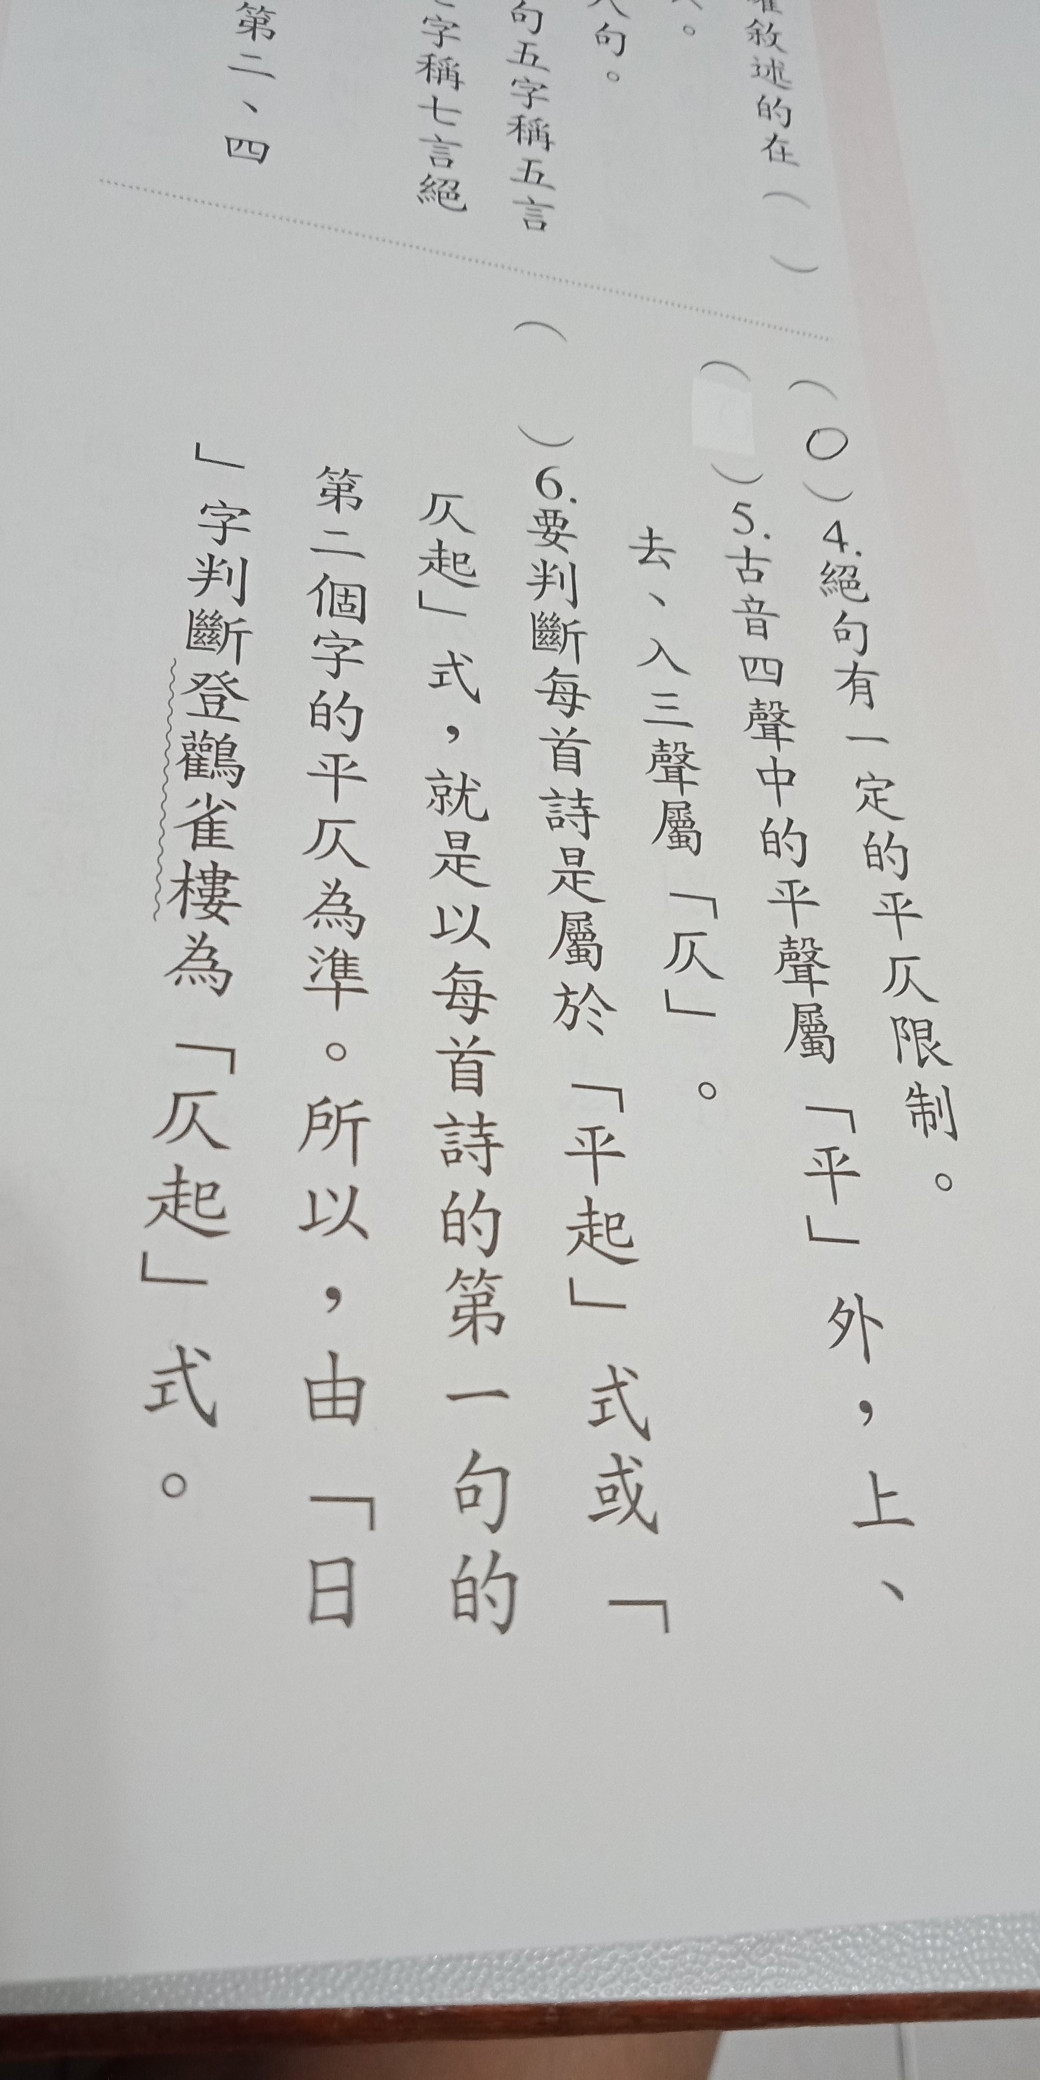 敘述的在（　）
句。
句五字稱五言
字稱七言絕
第二、四
（○）4.絕句有一定的平仄限制。
（　）5.古音四聲中的平聲屬「平」外，上、
去、入三聲屬「仄」。
（　）6.要判斷每首詩是屬於「平起」式或「
仄起」式，就是以每首詩的第一句的
第二個字的平仄為準。所以，由「日
」字判斷登鸛雀樓為「仄起」式。